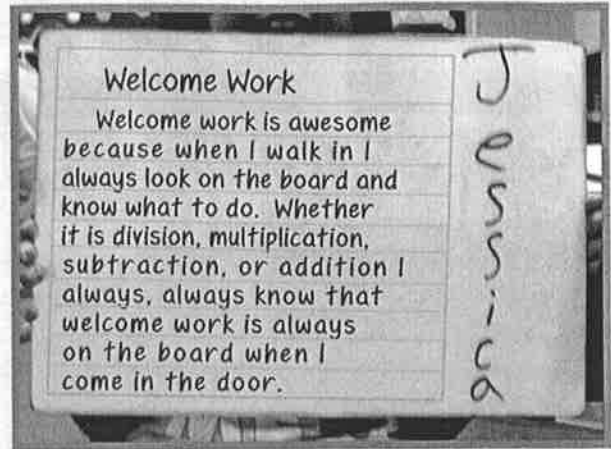 Welcome Work
Welcome work is awesome
because when I walk in I
always look on the board and
know what to do. Whether
it is division, multiplication,
subtraction, or addition I
always, always know that
welcome work is always
on the board when I
come in the door.
Jessica